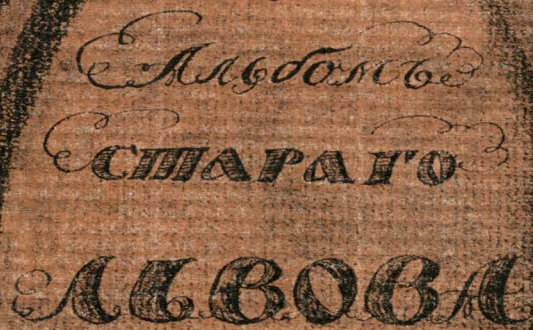 Альбомъ
стараго
Львова